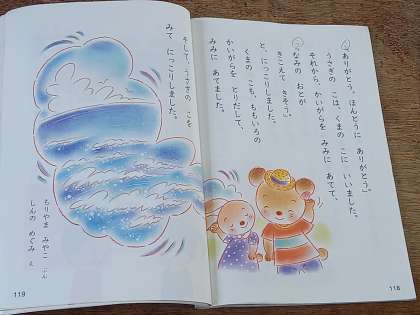 「ありがとう。ほんとうに　ありがとう。」
うさぎの　こは、くまの　こに　いいました。
それから、かいがらを　みみに　あてて、
「なみの　おとが
きこえて　きそう。」
と、にっこりしました。
くまの　こも、ももいろの
かいがらを　とりだして、
みみに　あてました。
118
そして、うさぎの　こを
みて　にっこりしました。
もりやま　みやこ　ぶん
しんの　めぐみ　え
119